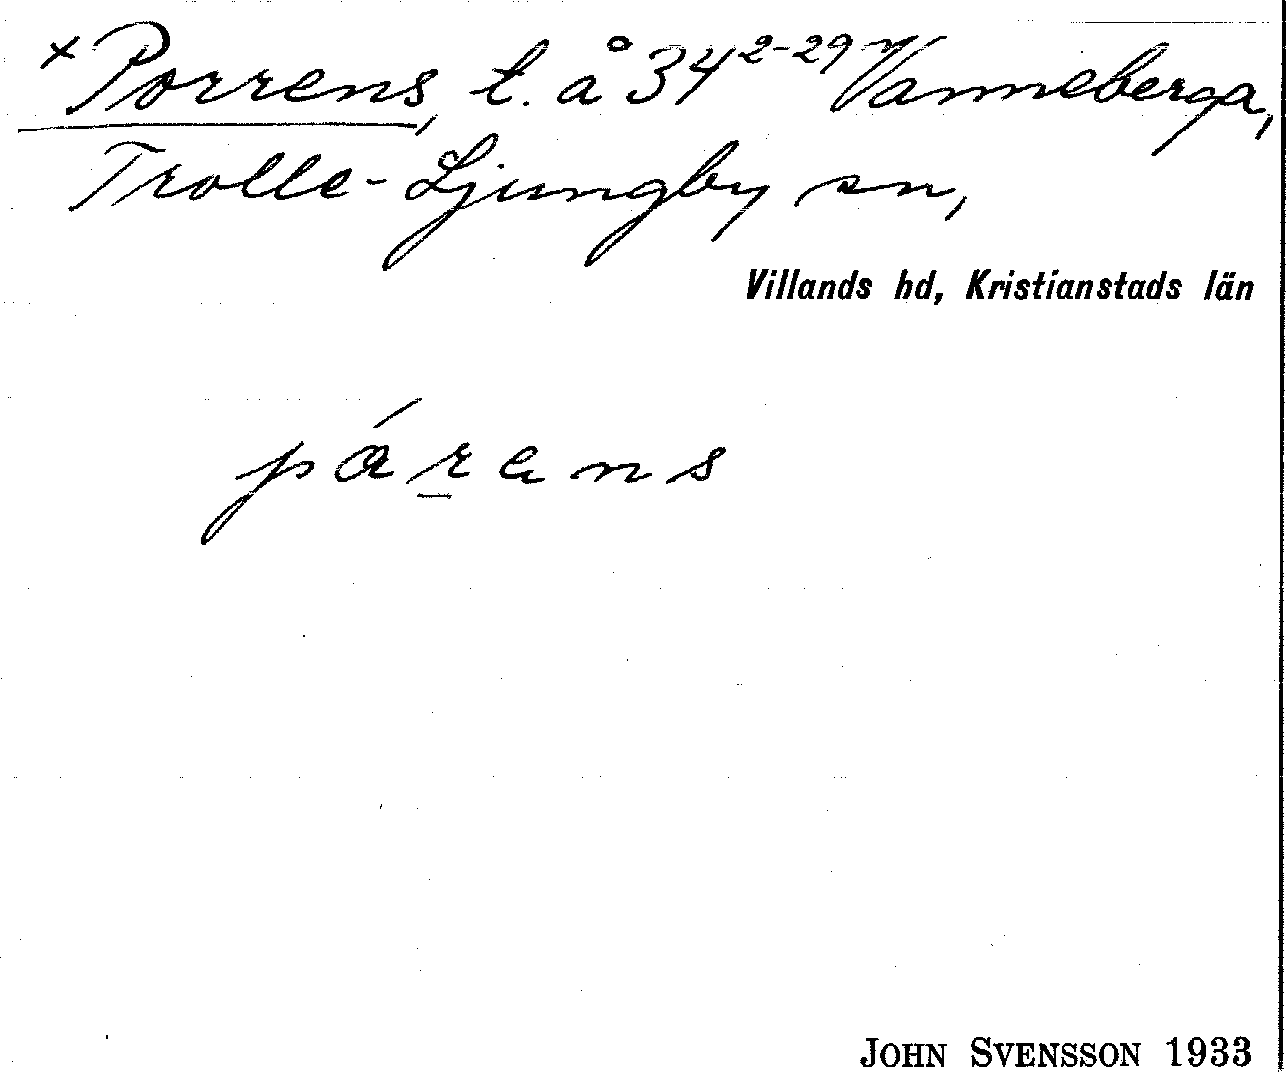 × Porrens, t. å 34²⁻²⁹ Vanneberga,
Trolle-Ljungby sn,
Villands hd, Kristianstads län
párans
JOHN SVENSSON 1933